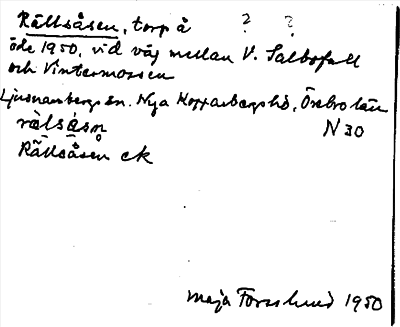 Rällsåsen, torp å ? ?
öde 1950, vid väg mellan V. Salbofall
och Vintermossen
Ljusnarsbergs sn. Nya Kopparbergs hd, Örebro län
rälsåsn N 30
Rällsåsen ek
Maja Forsslund 1950